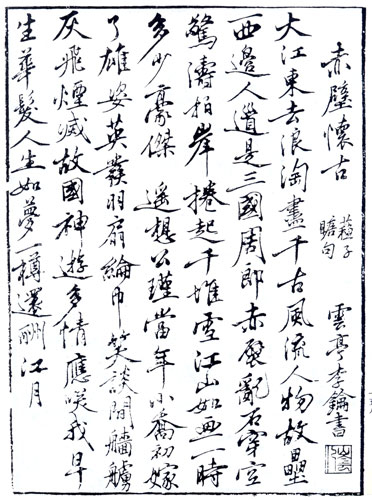 赤壁懷古
蘓子
瞻句
雲亭李鑰書
大江東去浪淘盡千古風流人物故壘
西邊人道是三國周郎赤壁亂石穿空
驚濤拍岸捲起千堆雪江山如画一時
多少豪傑 遙想公瑾當年小喬初嫁
了雄姿英發羽扇綸巾笑談間艢艣
灰飛煙滅故國神遊多情應咲我早
生華髮人生如夢一樽還酹江月